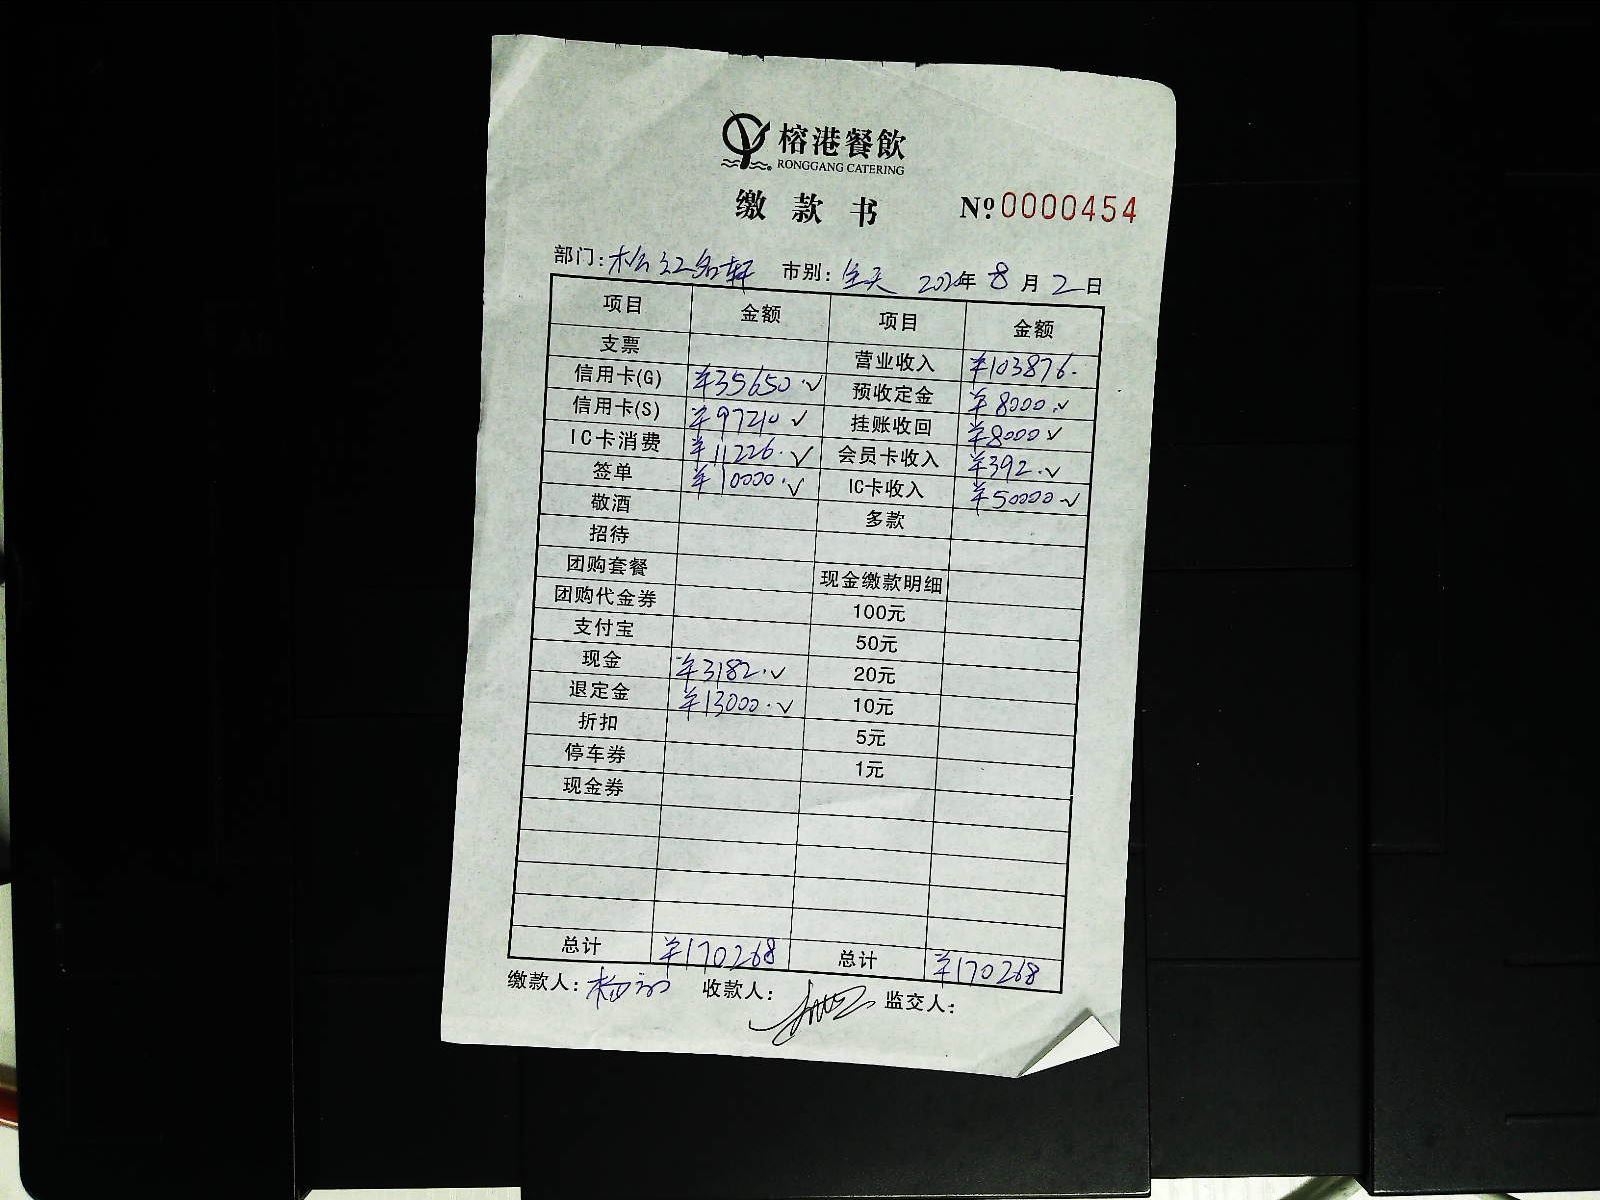 榕港餐飲
RONGGANG CATERING
缴款书 №0000454
部门：松江名轩 市别：全天 2020年8月2日
项目 金额 项目 金额
支票 营业收入 ¥103876.
信用卡(G) ¥35650.✓ 预收定金 ¥8000.✓
信用卡(S) ¥97210✓ 挂账收回 ¥8000✓
IC卡消费 ¥11226.✓ 会员卡收入 ¥392.✓
签单 ¥10000.✓ IC卡收入 ¥50000✓
敬酒 多款
招待
团购套餐 现金缴款明细
团购代金券 100元
支付宝 50元
现金 ¥3182.✓ 20元
退定金 ¥13000.✓ 10元
折扣 5元
停车券 1元
现金券
总计 ¥170268 总计 ¥170268
缴款人： 收款人： 监交人：